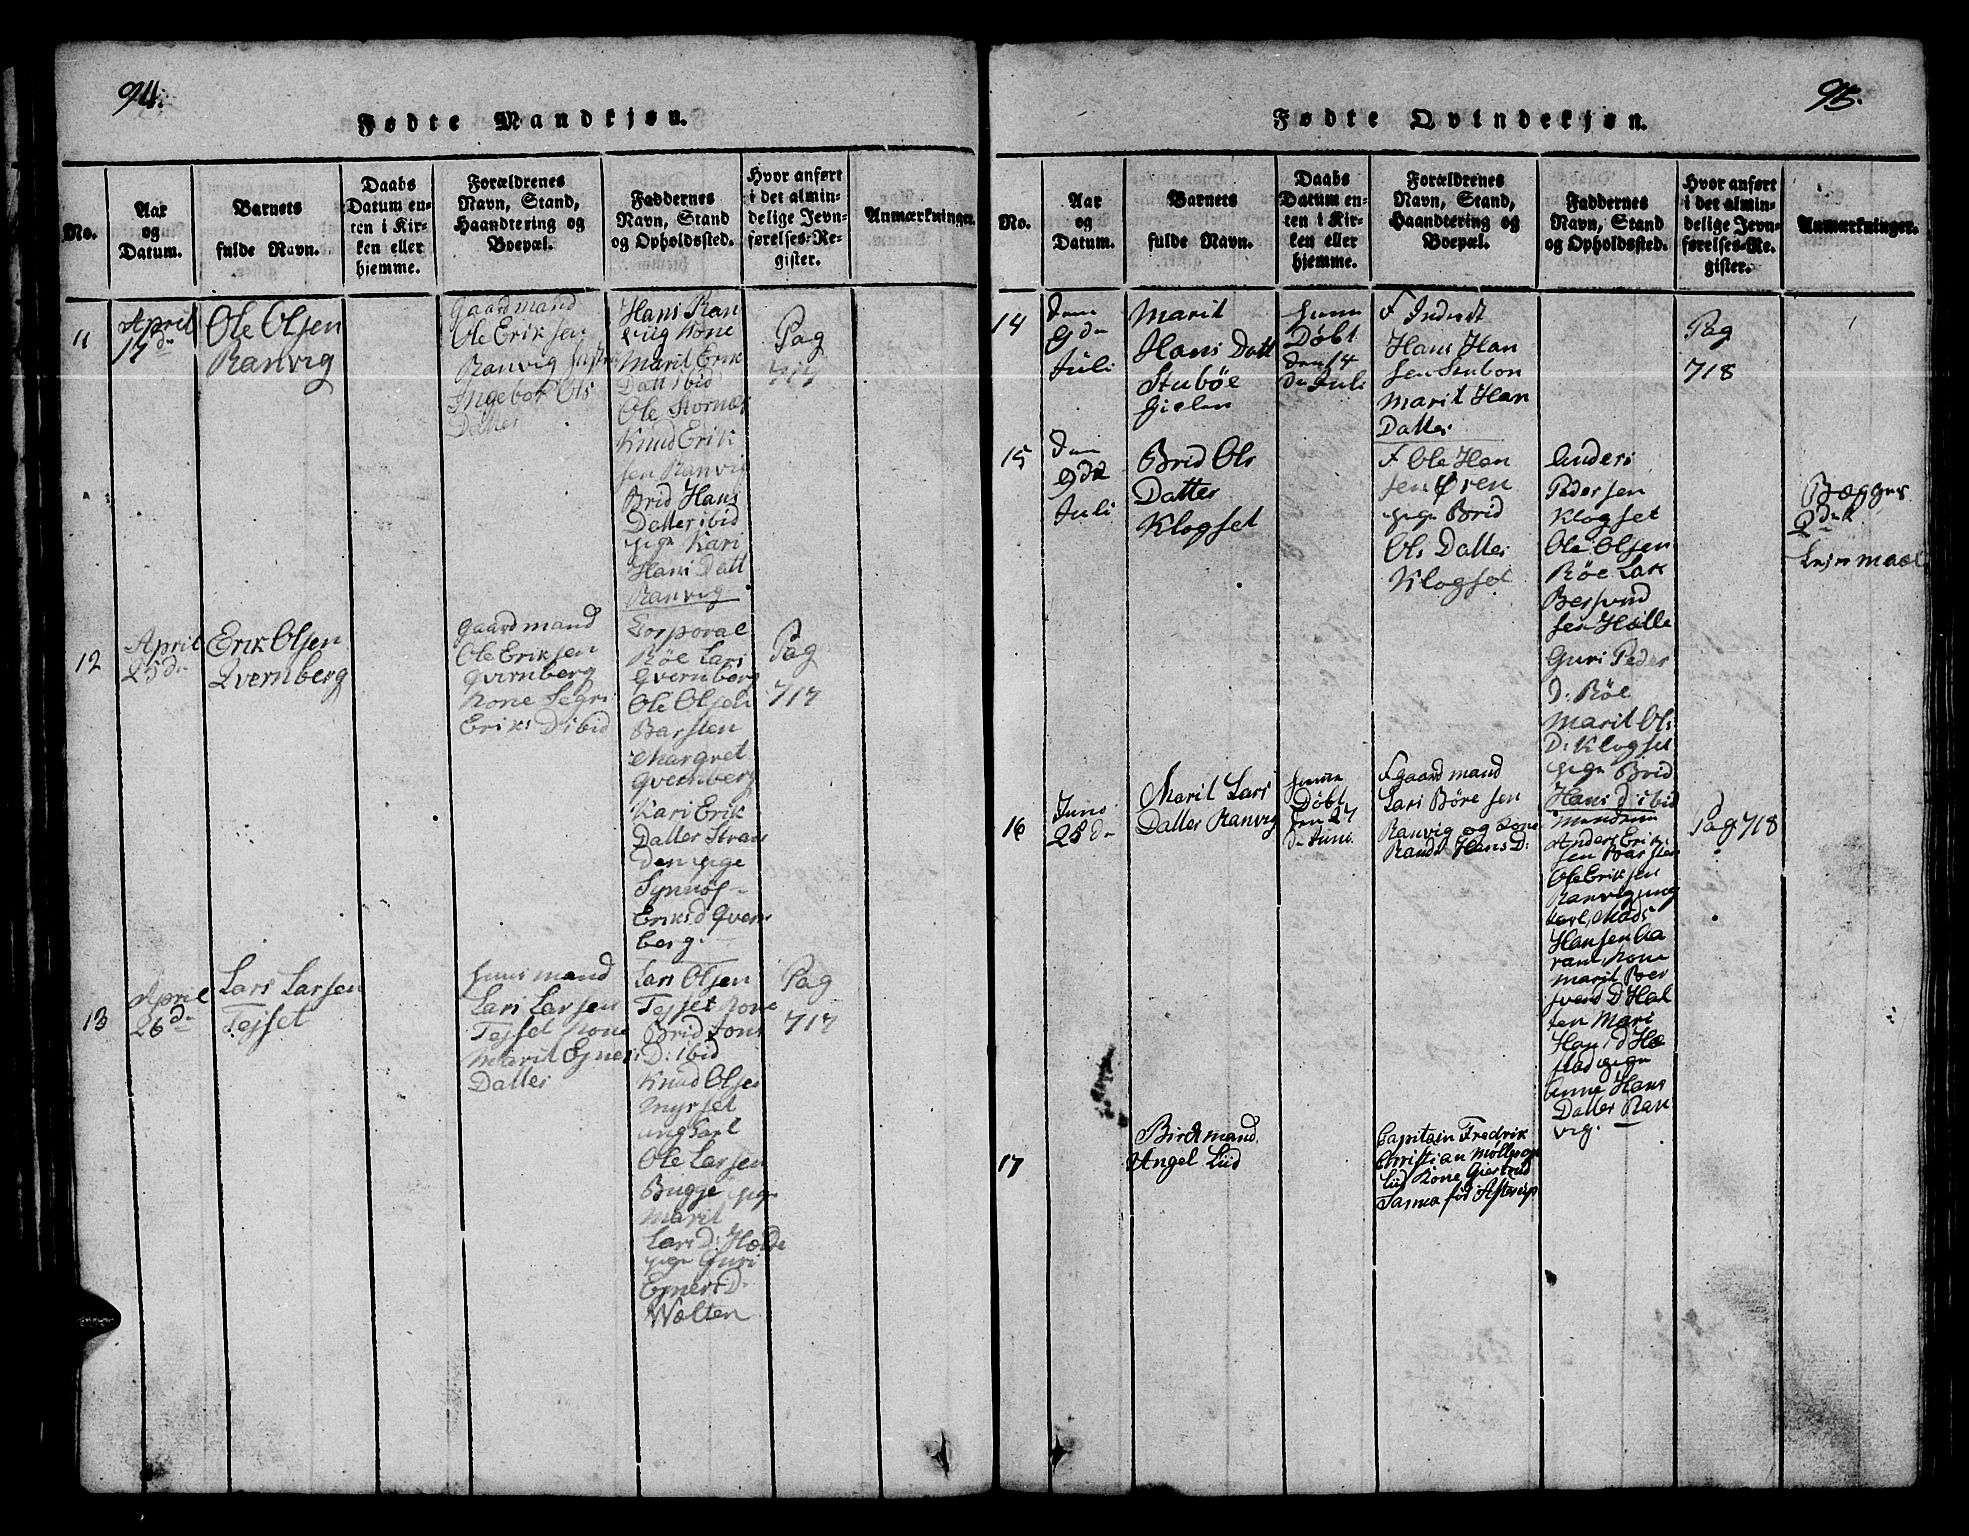 94.
Fødte Mandkjøn.
No.
Aar
og
Datum.
Barnets
fulde Navn.
Daabs
Datum en-
ten i Kir-
ken eller
hjemme.
Forældrenes
Navn, Stand,
Haandtering og
Boepæl.
Faddernes
Navn, Stand
og Opholdssted.
Hvor anført
i det almin-
delige Jevn-
førelses-Re-
gister.
Anmærkninger.
11
April
17de
Ole Olsen
Ranvig
Gaardmand
Ole Eriksen
Ranvig
Ingebor Ols
Datter
Hans Ran
vig Kone
Marit Erik
Datt ibid
Ole Stornæs
Knud Erik
sen Ranvig
Brid Hans
Datter ibid
pige Kari
Hans Datt
Ranvig
Pag
717
12
April
25de
Erik Olsen
Qvernberg
Gaardmand
Ole Eriksen
Qvernberg
Kone Segri
Eriks D ibid
Corporal
Röe Lars
Qvernberg
Ole Olsen
Barsten
Margret
Qvernberg
Kari Erik
Datter Stran
den pige
Synnøf
Eriksd Qvern
berg.
Pag
717
13
April
26de
Lars Larsen
Tejset
Huusmand
Lars Larsen
Tejset Kone
Marit Ejners
Datter
Lars Olsen
Tejset Kone
Brid Jons
D: ibid
Knud Olsen
Myrset
ungkarl
Ole Larsen
Bugge pige
Marit
Lars D: Hælde
pige Guri
Ejners D:
Wolten
Pag
717
95.
Fødte Qvindekjøn.
No.
Aar
og
Datum.
Barnets
fulde Navn.
Daabs
Datum en-
ten i Kir-
ken eller
hjemme.
Forældrenes
Navn, Stand,
Haandtering og
Boepæl.
Faddernes
Navn, Stand
og Opholdssted.
Hvor anført
i det almin-
delige Jevn-
førelses-Re-
gister.
Anmærkninger.
14
den
9de
Juli
Marit
Hans Datt
Stubøe
hiem
Døbt
den 14
de Juli
F Inderst
Hans Han
sen Stubøn
Marit Han
Datter
Pag
718
15
den
9de
Juli
Brid Ols
Datter
Klogset
F Ole Han
sen Øren
pige Brid
Ols Datter
Klogset
Anders
Pedersen
Klogset
Ole Olsen
Röe Lars
Bersvend
sen Hælle
Guri Peder
D: Röe
Marit Ols
D: Klogset
pige Brid
Hans D: ibid
Begges
2det
Lejermaal
16
Juni
25de
Marit Lars
Datter Ranvig
hjemme
Døbt
den 27
de Juni
F gaardmand
Lars Böresen
Ranvig og Kone
Randi Hans D:
Anders Erik-
sen Barsten
Ole Eriksen
Ranvig ung
karl, Mads
Hansen Ha
ram, Kone
Marit Ber
svend D Hal
ten Mari
Hans d Hæ
stad pige
Anne Hans
Datter Ran
vig.
Pag 718
17
Birchmand
Angel Lüd
Capitain Fredrik
Christian Møller
Lüd Kone Giertrud
Janna fød Asterup